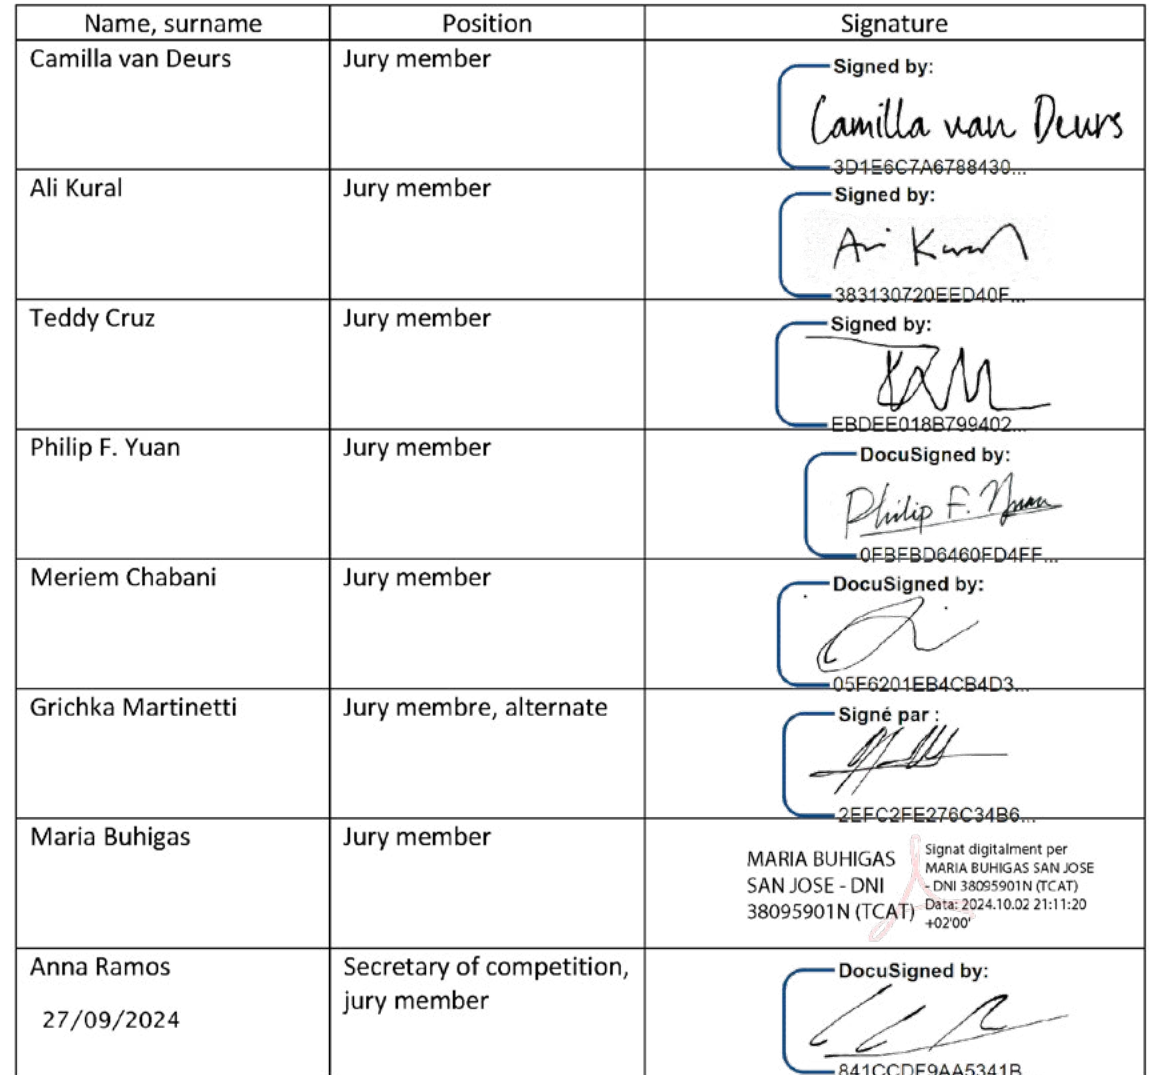 Name, surname
Position
Signature
Camilla van Deurs
Jury member
Signed by:
Camilla van Deurs
3D1E6C7A6788430...
Ali Kural
Jury member
Signed by:
383130720EED40F...
Teddy Cruz
Jury member
Signed by:
EBDEE018B799402...
Philip F. Yuan
Jury member
DocuSigned by:
Philip F. Yuan
0FBFBD6460FD4FF...
Meriem Chabani
Jury member
DocuSigned by:
05F6201EB4CB4D3...
Grichka Martinetti
Jury membre, alternate
Signé par :
2EFC2FE276C34B6...
Maria Buhigas
Jury member
MARIA BUHIGAS
SAN JOSE - DNI
38095901N (TCAT)
Signat digitalment per
MARIA BUHIGAS SAN JOSE
- DNI 38095901N (TCAT)
Data: 2024.10.02 21:11:20
+02'00'
Anna Ramos
27/09/2024
Secretary of competition,
jury member
DocuSigned by:
841CCDF9AA5341B